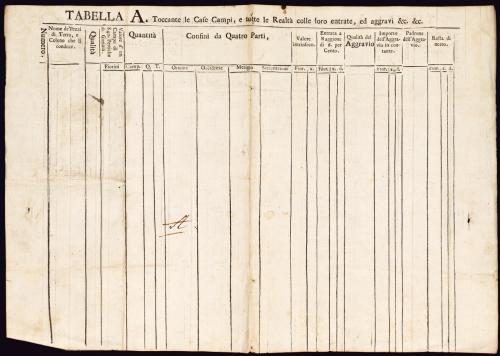 TABELLA A. Toccante le Case Campi, e tutte le Realtà colle loro entrate, ed aggravi &c. &c.
Numero.
Nome de' Pezzi
di Terra, e
Colono che li
conduce.
Qualità
Quantità
Confini da Quatro Parti,
Valore
Intrinseco.
Entrata a
Raggion di
6. per
Cento.
Qualità del
Aggravio
Importo
dell'Aggra-
vio in con-
tante.
Padrone
dell'Aggra-
vio.
Resta di
netto.
Fiorini
Camp. Q. T.
Oriente
Occidente
Mezogio
Settentrione
Fior. x.
Fior. x. d.
Fior. x. d.
Fior. x. d.